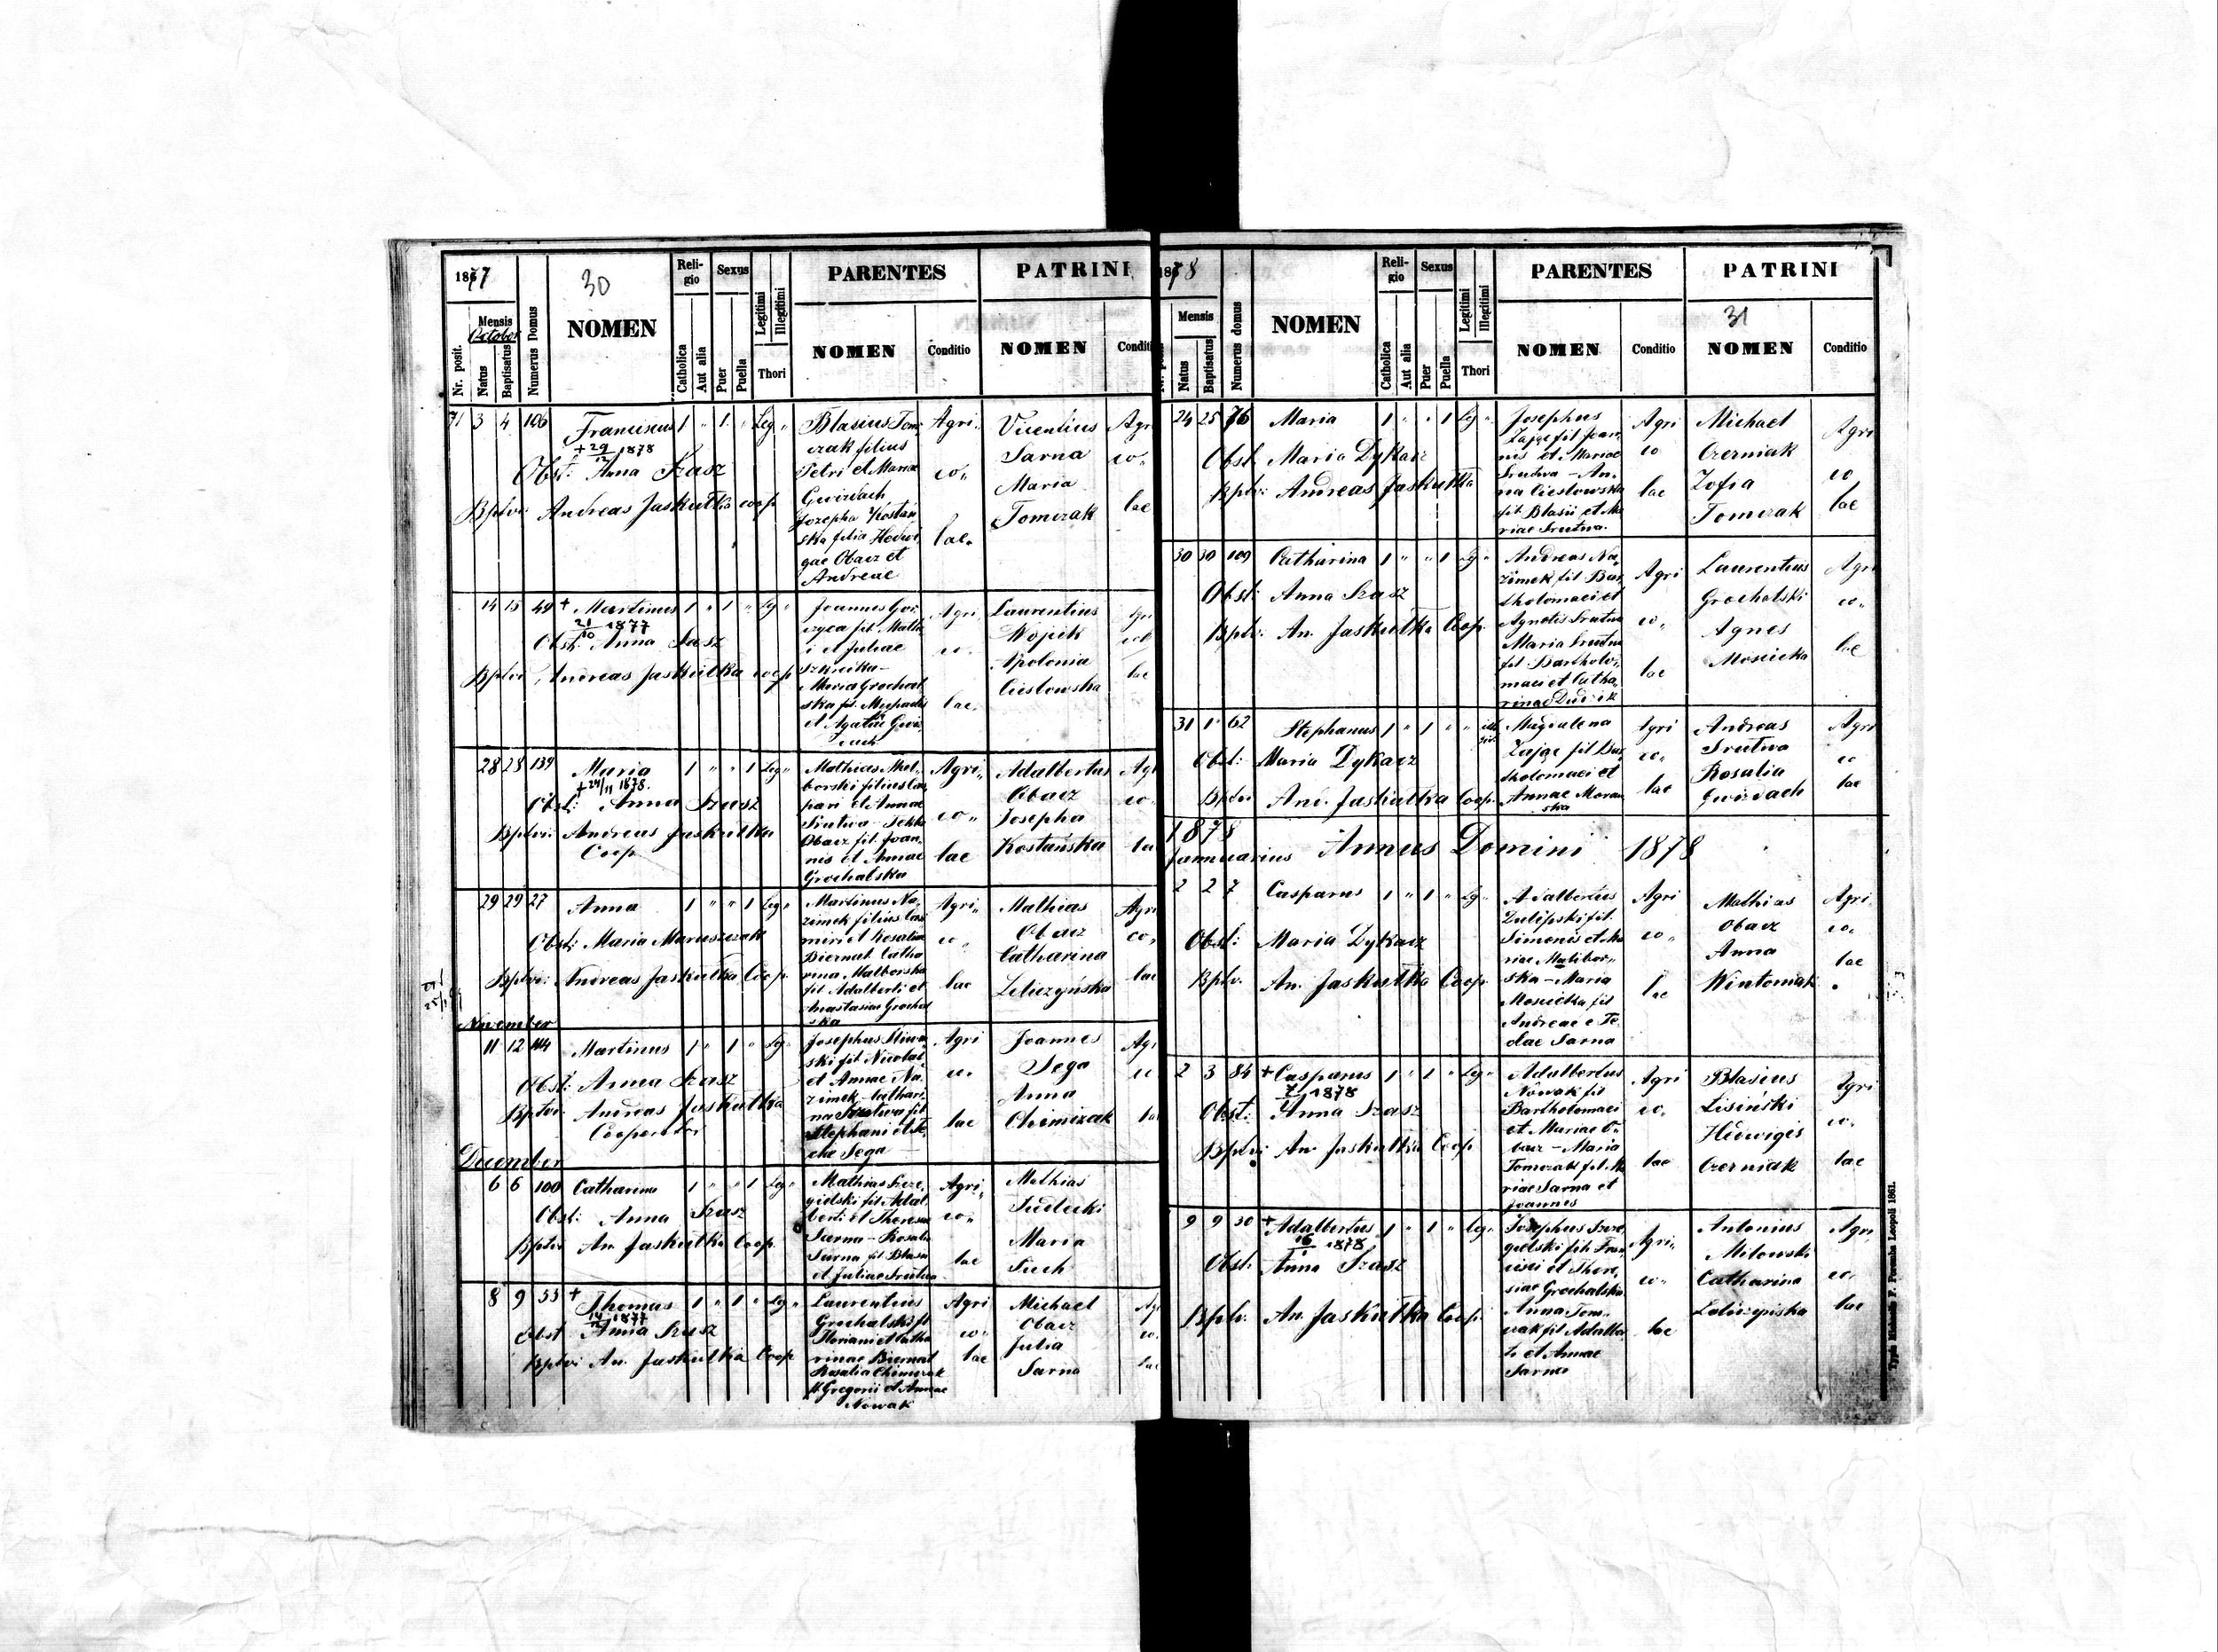 1877
30
Religio
Sexus
PARENTES
PATRINI
Nr. posit.
Mensis
October
Natus
Baptisatus
Numerus Domus
NOMEN
Catholica
Aut alia
Puer
Puella
Legitimi
Illegitimi
Thori
NOMEN
Conditio
NOMEN
71 3 4 106 Franciscus 1 " 1 " Leg "
+ 29/12 1878
Obst: Anna Szasz
Bptvi: Andreas Jaskulka coop
Blasius Tom
czak filius
Petri et Mariae
Gwizdach
Jozepha Kostań
ska filia Hedwi
gae Obacz et
Andreae
Agri
co"
lae
Vicentius
Sarna
Maria
Tomczak
Agri
co"
lae
14 15 49 + Martinus 1 " 1 " Leg "
21/10 1877
Obst: Anna Sasz
Bptvi Andreas Jaskulka coop
Joannes
fil Math
i et Juliae
Maria Grochol
ska fil.
et Agatae Gwiz
dach
Agri
co
lae
Laurentius
Wojcik
Apolonia
Cieslowska
lae
28 28 139 Maria 1 " " 1 Leg "
+ 24/11 1878.
Obst: Anna Szasz
Bptvi: Andreas Jaskulka
Coop
Mathias Mal
borski filius Cas
pari et Annae
Srutwa - Tekla
Obacz fil. Joan
nis et Annae
Grochalska
Agri"
co"
lae
Adalbertus
Obacz
Josepha
Kostańska
co
29 29 27 Anna 1 " " 1 Leg "
Obst: Maria Maruszczak
Bptvi: Andreas Jaskulka Coop
Martinus Na
zimek filius Casi
miri et Rosaliae
Biernat Catha
rina Malborska
fil Adalberti et
Anastasiae Grochal
ska
Agri"
co"
lae
Mathias
Obacz
Catharina
Leliczyńska
Agri
co"
lae
November
11 12 114 Martinus 1 " 1 " Leg "
Obst: Anna Szasz
Bptvi Andreas Jaskulka
Cooperator
Josephus Sliw
ski fil Nicolai
et Annae Na
zimek - Cathari
na Srutwa fil
Stephani et Te
clae Sega
Agri
co
lae
Joannes
Sega
Anna
Chimczak
December
6 6 100 Catharina 1 " " 1 Leg "
Obst: Anna Szasz
Bptvi An. Jaskulka Coop
Mathias Szcze
gielski fil Adal
berti et Theresiae
Sarna - Rosalia
Sarna fil Blasii
et Juliae Srutwa
Agri"
co"
lae
Mathias
Sudecki
Maria
Such
8 9 53 + Thomas 1 " 1 " Leg "
14/12 1877
Obst Anna Szasz
Bptvi An. Jaskulka Coop
Laurentius
Grochalski fil
Floriani et Catha
rinae Biernat
Rosalia Chimczak
fil Gregorii et Annae
Nowak
Agri
co"
lae
Michael
Obacz
Julia
Sarna
co.
1878
Religio
Sexus
PARENTES
PATRINI
31
Mensis
Natus
Baptisatus
Numerus domus
NOMEN
Catholica
Aut alia
Puer
Puella
Legitimi
Illegitimi
Thori
NOMEN
Conditio
NOMEN
Conditio
24 25 76 Maria 1 " " 1 Leg "
Obst. Maria Dykacz
Bptvi: Andreas Jaskulka
Josephus
Zajac fil Joan
nis et Mariae
Srutwa - An
na Cieslowska
fil Blasii et Ma
riae Srutwa.
Agri
co
lae
Michael
Czerniak
Zofia
Tomczak
Agri
co
lae
30 30 109 Catharina 1 " " 1 Leg "
Obst: Anna Szasz
Bptvi: An. Jaskulka Coop.
Andreas Na
zimek fil Bar
tholomaei et
Agnetis Srutwa
Maria Srutwa
fil Bartholo
maei et Catha
rinae Dudzik
Agri
co"
lae
Laurentius
Grochalski
Agnes
Moscicka
Agri
co"
lae
31 1 62 Stephanus 1 " 1 " " ille
git.
Obst: Maria Dykacz
Bptvi And. Jaskulka Coop.
Magdalena
Zajac fil Bar
tholomaei et
Annae Moraw
ska
Agri
co"
lae
Andreas
Srutwa
Rosalia
Gwizdach
Agri
co
lae
1878
Januarius Annus Domini 1878
2 2 7 Casparus 1 " 1 " Leg "
Obst: Maria Dykacz
Bptv. An. Jaskulka Coop
Adalbertus
Zulipski fil.
Simonis et Ma
riae Malibor"
ska - Maria
Moscicka fil
Andreae e Te
clae Sarna
Agri
co"
lae
Mathias
Obacz
Anna
Wintoniak
Agri
co.
lae
2 3 84 + Casparus 1 " 1 " Leg "
7/1 1878
Obst: Anna Szasz
Bptvi An. Jaskulka Coop
Adalbertus
Nowak fil
Bartholomaei
et Mariae O
bacz - Maria
Tomczak fil. Ma
riae Sarna et
Joannes
Agri
co.
lae
Blasius
Lisiński
Hedwigis
Czerniak
Agri
co.
lae
9 9 30 + Adalbertus 1 " 1 " Leg "
16/1 1878
Obst. Anna Szasz
Bptv. An. Jaskulka Coop
Josephus Szcze
gielski fil Fran
cisci et There
siae Grochalska
Anna Tom
czak fil Adalber
ti et Annae
Sarna
Agri"
co"
lae
Antonius
Milowski
Catharina
Leliczyńska
Agri
co.
lae
Typis Michaelis F. Poremba Leopoli 1861.